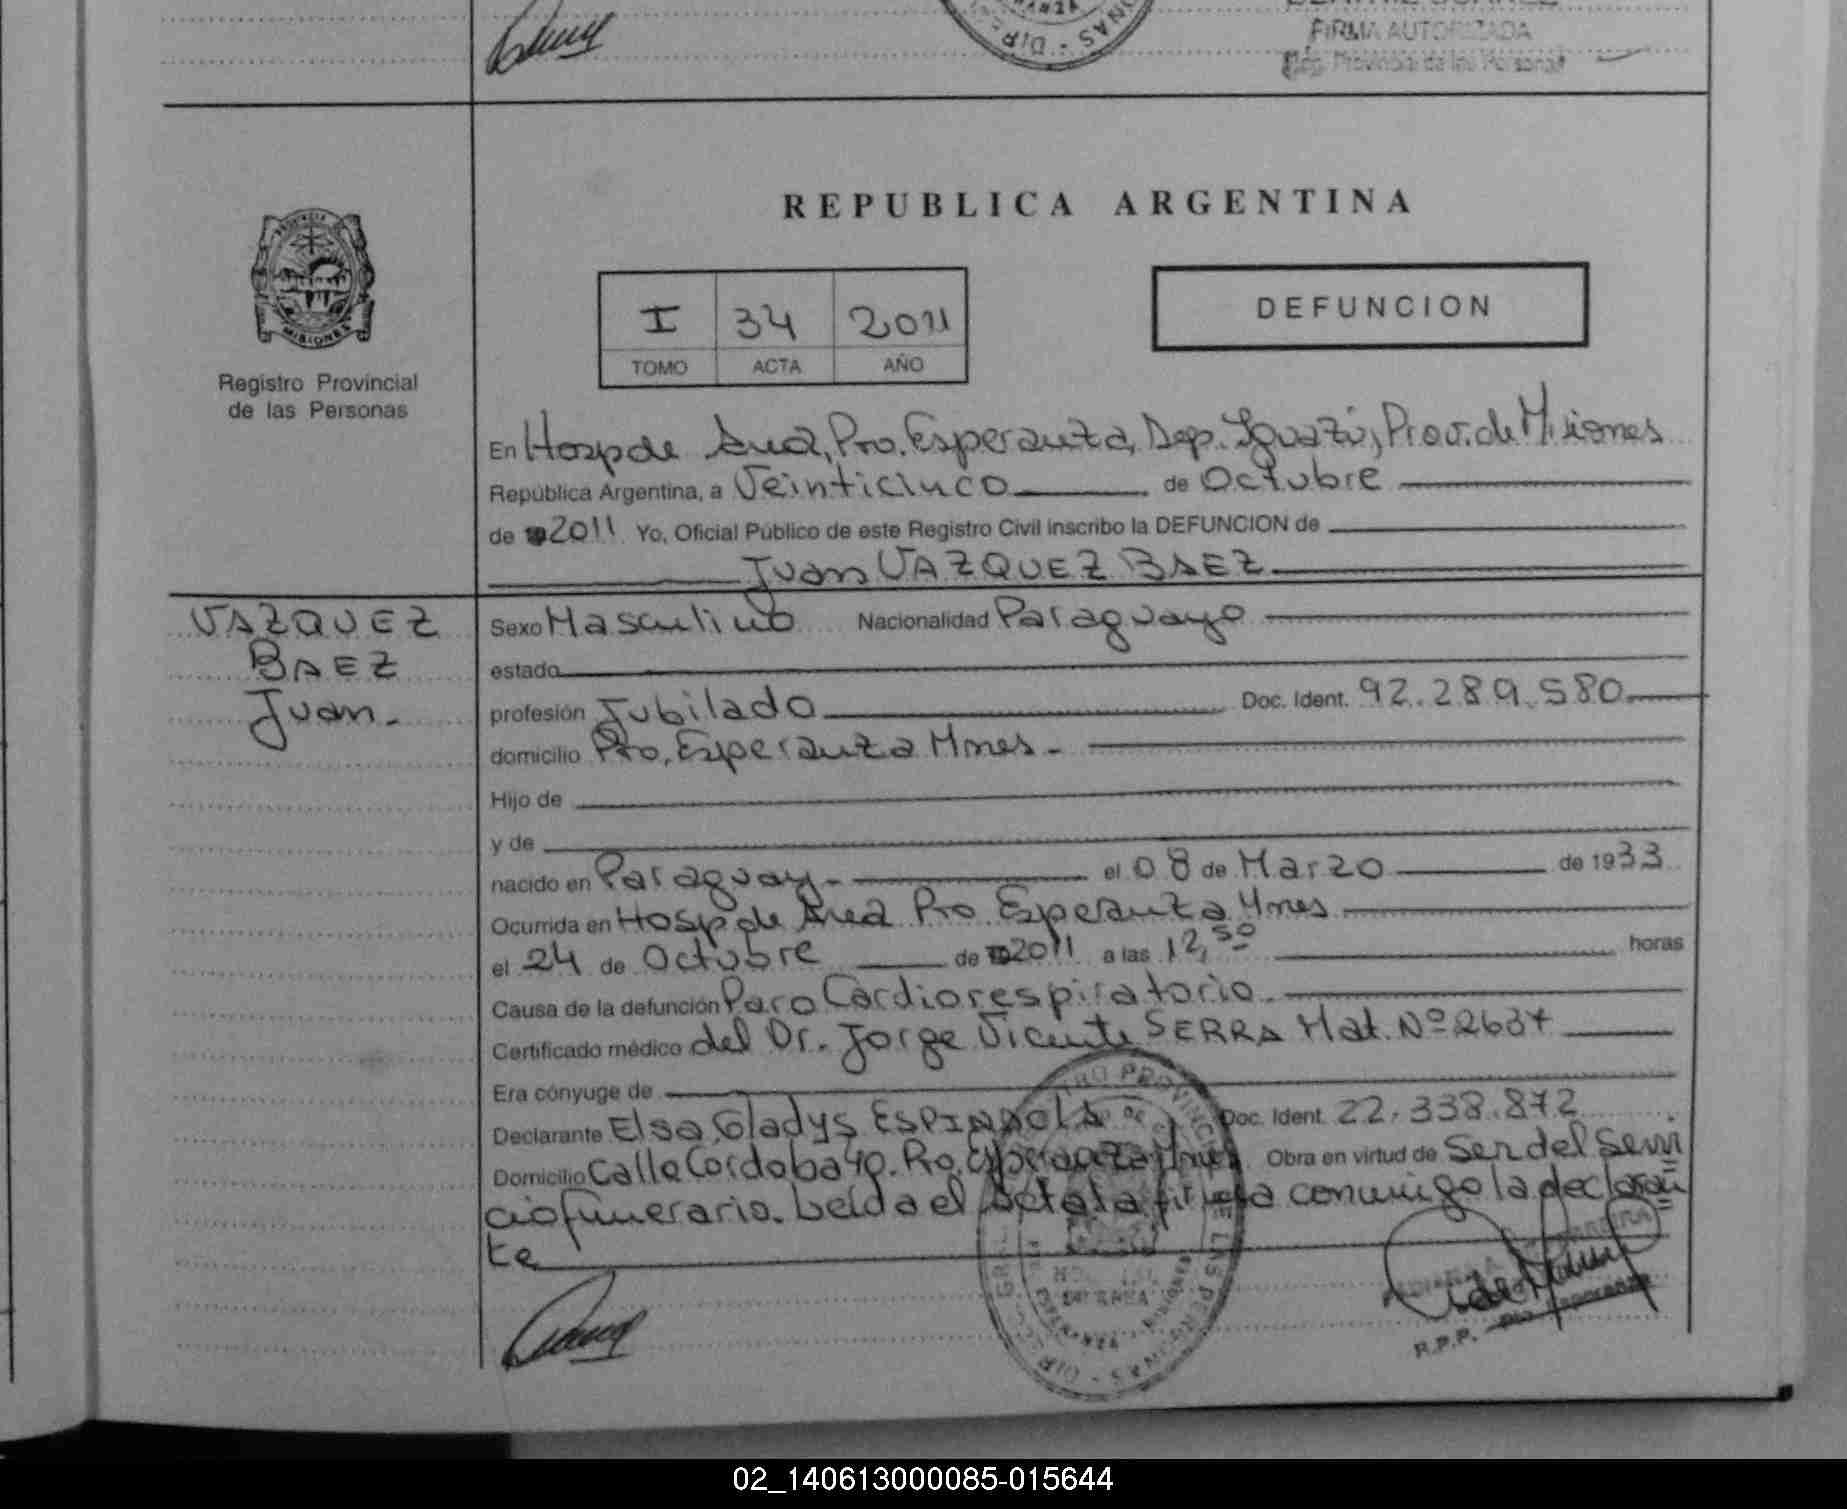 FIRMA AUTORIZADA
Reg. Provincial de las Personas
REPUBLICA ARGENTINA
I 34 2011
TOMO ACTA AÑO
DEFUNCION
MISIONES
Registro Provincial
de las Personas
En Hosp de Area, Pto. Esperanza, Dep. Iguazú, Prov. de Misiones
República Argentina, a Veinticinco de Octubre
de 2011 Yo, Oficial Público de este Registro Civil inscribo la DEFUNCION de
Juan VAZQUEZ BAEZ
VAZQUEZ
BAEZ
Juan.-
Sexo Masculino Nacionalidad Paraguayo
estado
profesión Jubilado Doc. Ident. 92.289.580
domicilio Pto. Esperanza Mnes.-
Hijo de
y de
nacido en Paraguay.- el 08 de Marzo de 1933
Ocurrida en Hosp de Area Pto Esperanza Mnes
el 24 de Octubre de 2011 a las 12,50 horas
Causa de la defunción Paro Cardiorespiratorio.
Certificado médico del Dr. Jorge Vicente SERRA Mat. Nº 2637
Era cónyuge de
Declarante Elsa Gladys ESPINDOLA Doc. Ident. 22.338.872
Domicilio Calle Cordoba 40. Pto. Esperanza Mnes Obra en virtud de Ser del Servi
cio funerario. Leida el Acta la firma conmigo la declaran
te
R.P.P. Pto Esperanza
02_140613000085-015644